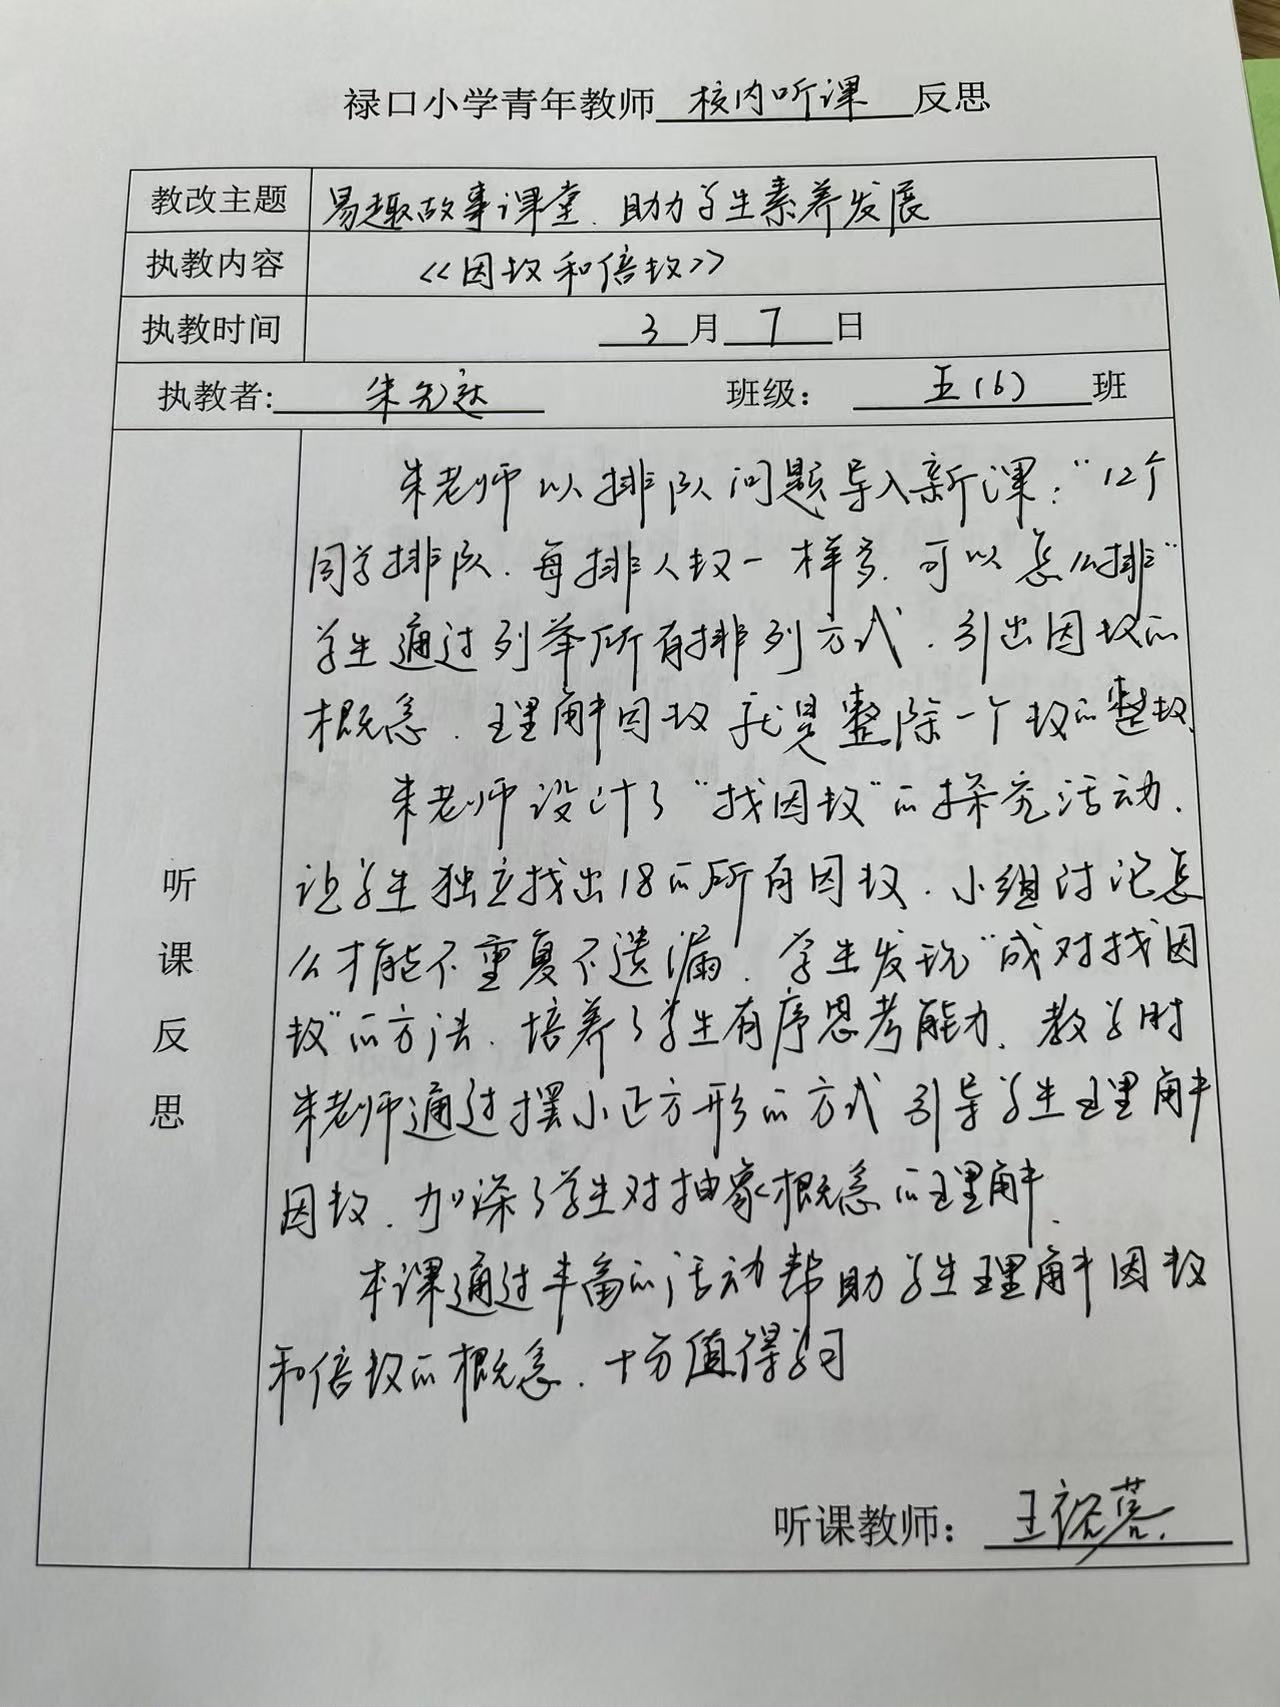 禄口小学青年教师 校内听课 反思
教改主题 易趣故事课堂、助力学生素养发展
执教内容 《因数和倍数》
执教时间 3月7日
执教者: 朱先达 班级: 五(6)班
朱老师以排队问题导入新课:"12个
同学排队、每排人数一样多、可以怎么排"
学生通过列举所有排列方式、引出因数的
概念、理解因数就是整除一个数的整数、
朱老师设计了"找因数"的探究活动、
让学生独立找出18的所有因数、小组讨论怎
么才能不重复不遗漏、学生发现"成对找因
数"的方法、培养了学生有序思考能力、教学时
朱老师通过摆小正方形的方式引导学生理解
因数、加深了学生对抽象概念的理解、
本课通过丰富的活动帮助学生理解因数
和倍数的概念、十分值得学习
听
课
反
思
听课教师: 王